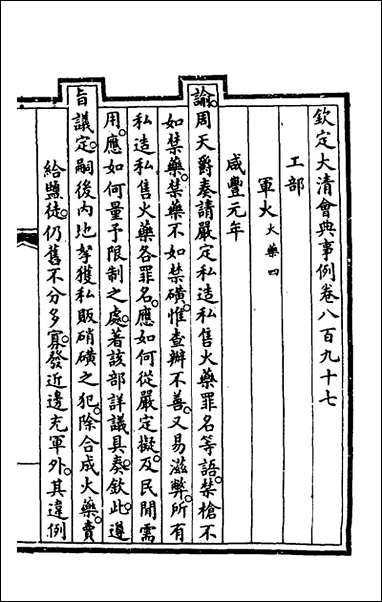 欽定大清會典事例卷八百九十七
工部
軍火火藥四
咸豐元年
諭周天爵奏請嚴定私造私售火藥罪名等語禁槍不
如禁藥禁藥不如禁磺惟查辦不善又易滋弊所有
私造私售火藥各罪名應如何從嚴定擬及民間需
用應如何量予限制之處著該部詳議具奏欽此遵
旨議定嗣後內地拏獲私販硝磺之犯除合成火藥賣
給鹽徒仍舊不分多寡發近邊充軍外其違例